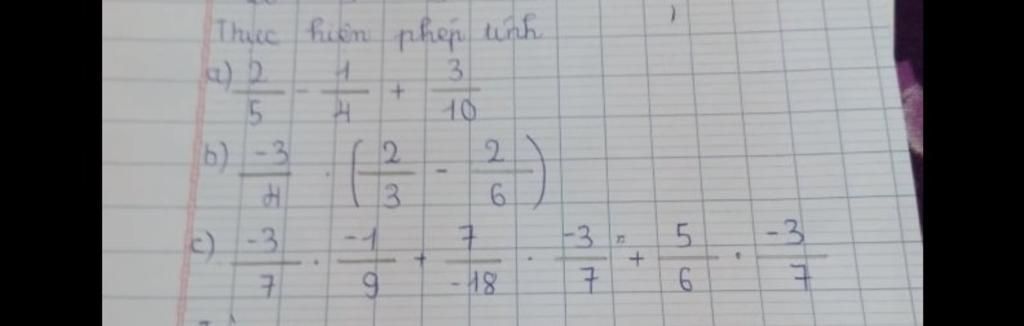 Thực hiện phép tính
a) 2/5 - 1/4 + 3/10
b) -3/4 . (2/3 - 2/6)
c) -3/7 . -1/9 + 7/-18 . -3/7 + 5/6 . -3/7